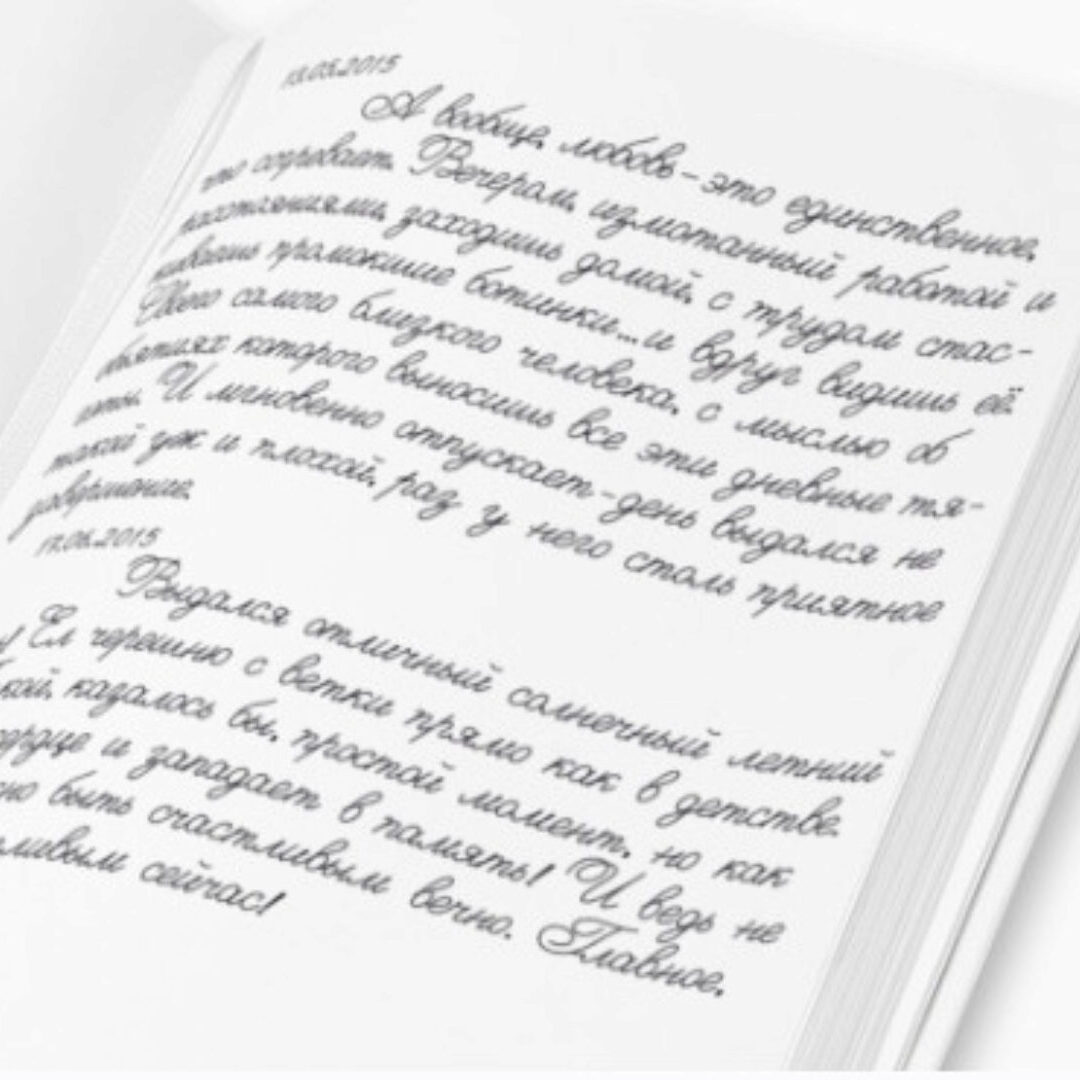 А вообще, любовь - это единственное,
что согревает. Вечером, измотанный работой и
расстояниями, заходишь домой, с трудом стас-
киваешь промокшие ботинки... и вдруг видишь её.
Твоего самого близкого человека, с мыслью об
объятиях которого выносишь все эти дневные тя-
готы. И мгновенно отпускает - день выдался не
такой уж и плохой, раз у него столь приятное
завершение.
Выдался отличный солнечный летний
! Ел черешню с ветки прямо как в детстве.
кой, казалось бы, простой момент, но как
ердце и западает в память! И ведь не
но быть счастливым вечно. Главное,
ливым сейчас!